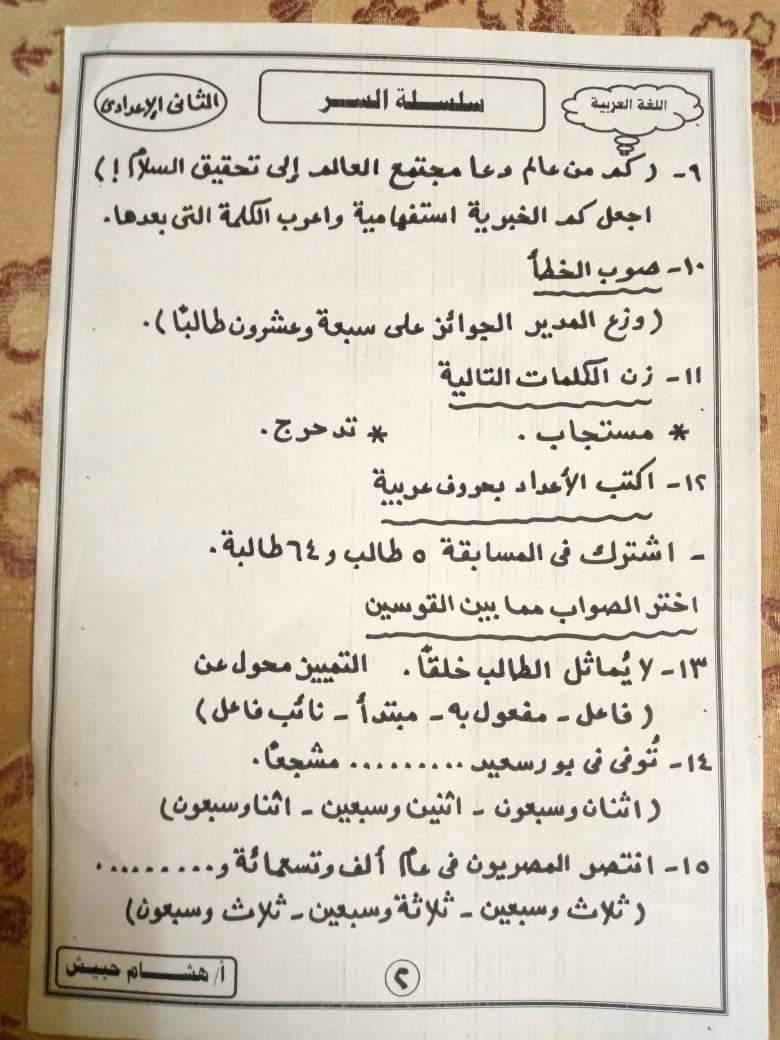 اللغة العربية
سلسلة السر
الثانى الإعدادى
٩- (كم من عالم دعا مجتمع العالم إلى تحقيق السلام!)
اجعل كم الخبرية استفهامية واعرب الكلمة التى بعدها.
١٠- صوب الخطأ
(وزع المدير الجوائز على سبعة وعشرون طالبًا).
١١- زن الكلمات التالية
* مستجاب. * تدحرج.
١٢- اكتب الأعداد بحروف عربية
- اشترك فى المسابقة ٥ طالب و ٦٤ طالبة.
اختر الصواب مما بين القوسين
١٣- لا يُماثل الطالب خلقًا. التمييز محول عن
(فاعل - مفعول به - مبتدأ - نائب فاعل)
١٤- تُوفى فى بورسعيد .......... مشجعًا.
(اثنان وسبعون - اثنين وسبعين - اثنا وسبعون)
١٥- انتصر المصريون فى عام ألف وتسعمائة و..........
(ثلاث وسبعين - ثلاثة وسبعين - ثلاث وسبعون)
٢
أ/ هشام حبيش